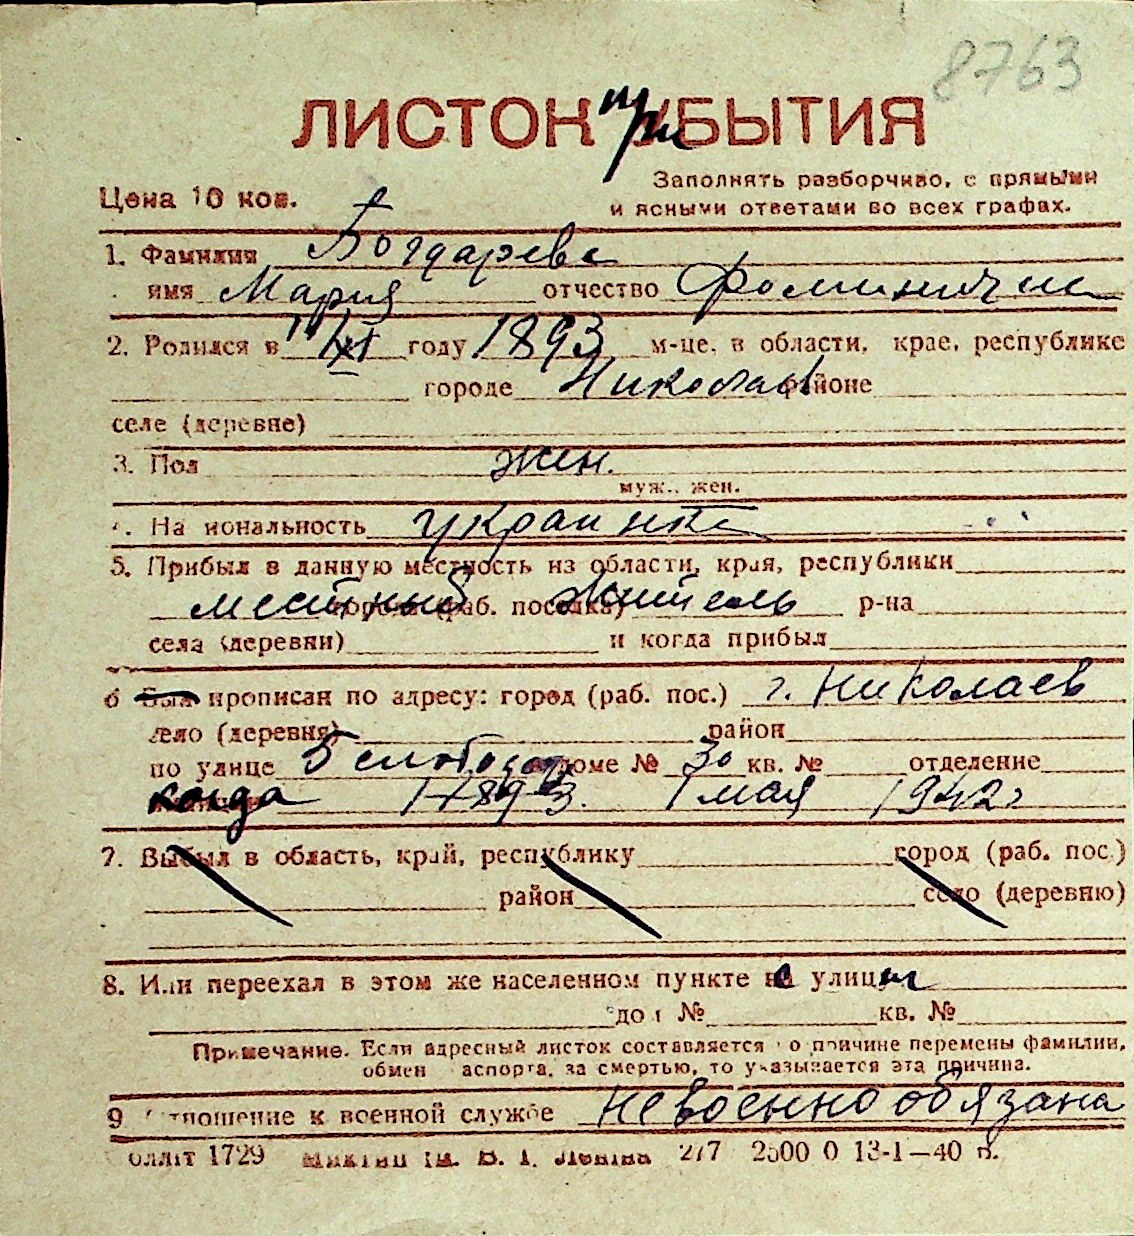 8763
ЛИСТОК прибытия
Цена 10 коп.
Заполнять разборчиво, с прямыми
и ясными ответами во всех графах.
1. Фамилия Богдарева
имя Мария отчество Фоминична
2. Родился в 1/XI году 1893 м-це, в области, крае, республике
городе Николаев районе
селе (деревне)
3. Пол жен.
муж., жен.
4. Национальность украинка
5. Прибыл в данную местность из области, края, республики
местный города (раб. поселка) житель р-на
села (деревни) и когда прибыл
6 Был прописан по адресу: город (раб. пос.) г. Николаев
село (деревня) район
по улице 5 слободск. доме № 30 кв. № отделение
когда 1893. 1 мая 1942
7. Выбыл в область, край, республику город (раб. пос.)
район село (деревню)
8. Или переехал в этом же населенном пункте с улицы
дом № кв. №
Примечание. Если адресный листок составляется по причине перемены фамилии,
обмен паспорта, за смертью, то указывается эта причина.
9 Отношение к военной службе не военнообязана
облліт 1729 ім. В. І. Леніна 277 2500 0 13-1—40 п.